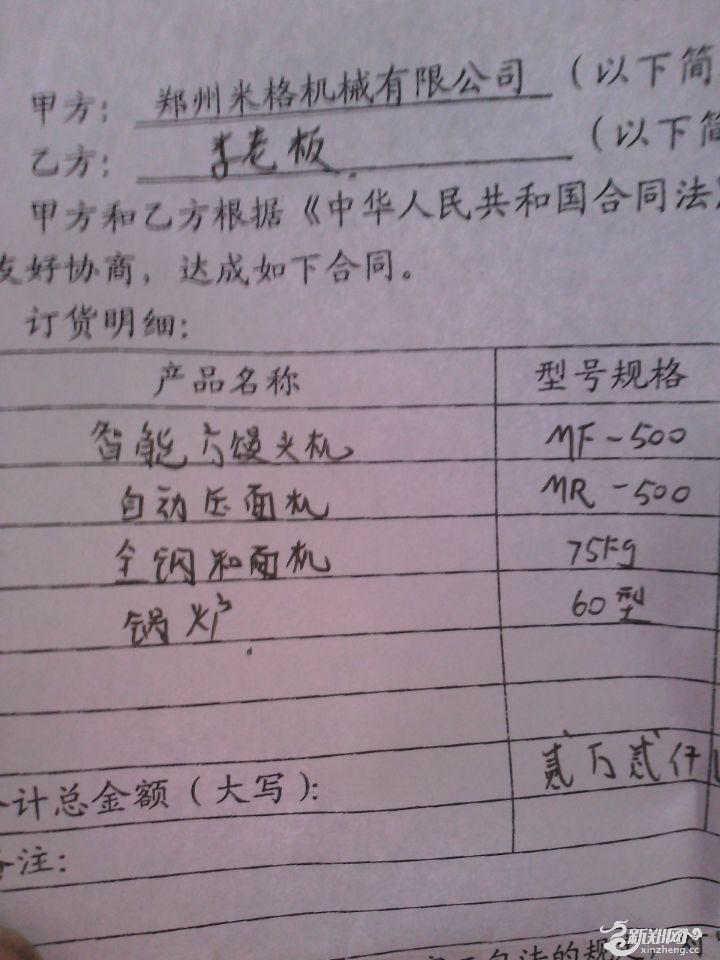 甲方：郑州米格机械有限公司（以下简
乙方：李老板（以下简
甲方和乙方根据《中华人民共和国合同法》
友好协商，达成如下合同。
订货明细：
产品名称 型号规格
智能方馒头机 MF-500
自动压面机 MR-500
全钢和面机 75Kg
锅炉 60型
合计总金额（大写）： 贰万贰仟
备注：
法的规
新郑网
xinzheng.cc